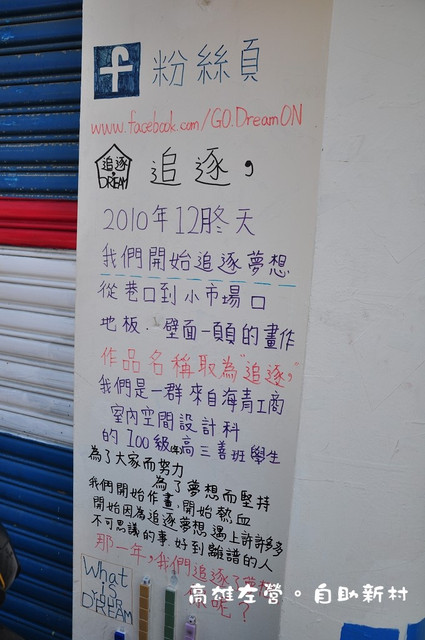 f 粉絲頁
www.facebook.com/GO.DreamON
追逐 DREAM 追逐,
2010年12月冬天
我們開始追逐夢想
從巷口到小市場口
地板.壁面一頁頁的畫作
作品名稱取為"追逐,"
我們是一群來自海青工商
室內空間設計科
的100級(年)高三善班學生
為了大家而努力
為了夢想而堅持
我們開始作畫,開始熱血
開始因為追逐夢想 遇上許許多多
不可思議的事.好到離譜的人
那一年,我們追逐了夢想
你呢?
What
is
YOUR
DREAM
高雄左營。自助新村